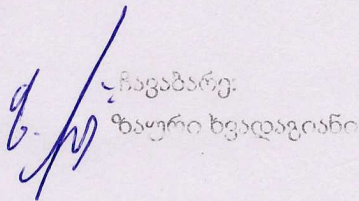 ჩავაბარე:
ზაური ხვადაგიანი